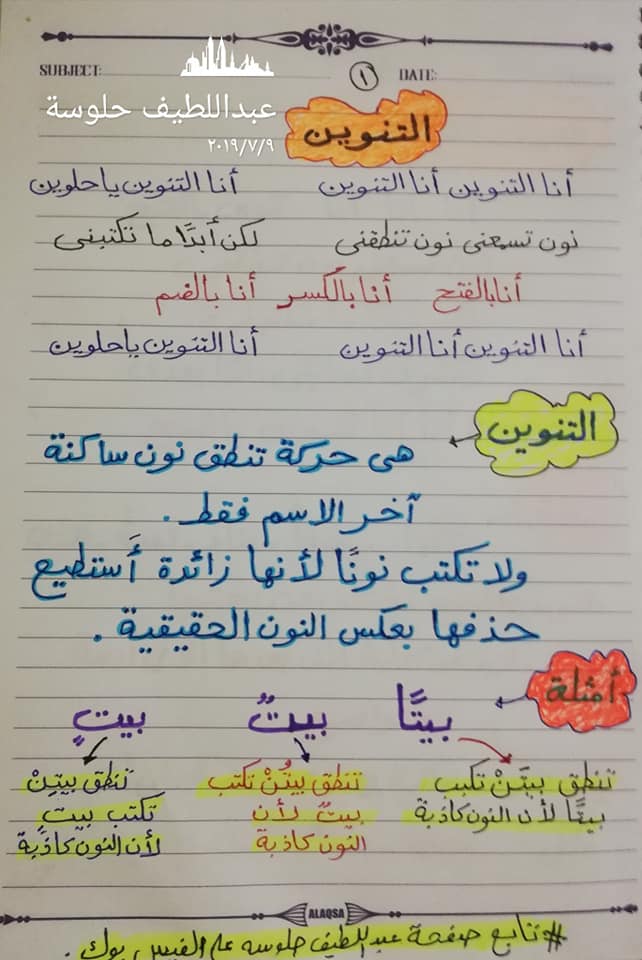 SUBJECT: ١ DATE:
عبداللطيف حلوسة
٢٠١٩/٧/٩
التنوين
أنا التنوين أنا التنوين أنا التنوين ياحلوين
نون تسمعنى نون تنطقنى لكن أبدًا ما تكتبنى
أنا بالفتح أنا بالكسر أنا بالضم
أنا التنوين أنا التنوين أنا التنوين ياحلوين
التنوين
هى حركة تنطق نون ساكنة
آخر الاسم فقط .
ولا تكتب نونًا لأنها زائدة أستطيع
حذفها بعكس النون الحقيقية .
أمثلة
بيتًا بيتٌ بيتٍ
تنطق بيتَنْ تكتب
بيتًا لأن النون كاذبة
تنطق بيتُنْ تكتب
بيتٌ لأن
النون كاذبة
تنطق بيتِنْ
تكتب بيتٍ
لأن النون كاذبة
ALAQSA
#تابع صفحة عبداللطيف حلوسه على الفيس بوك .